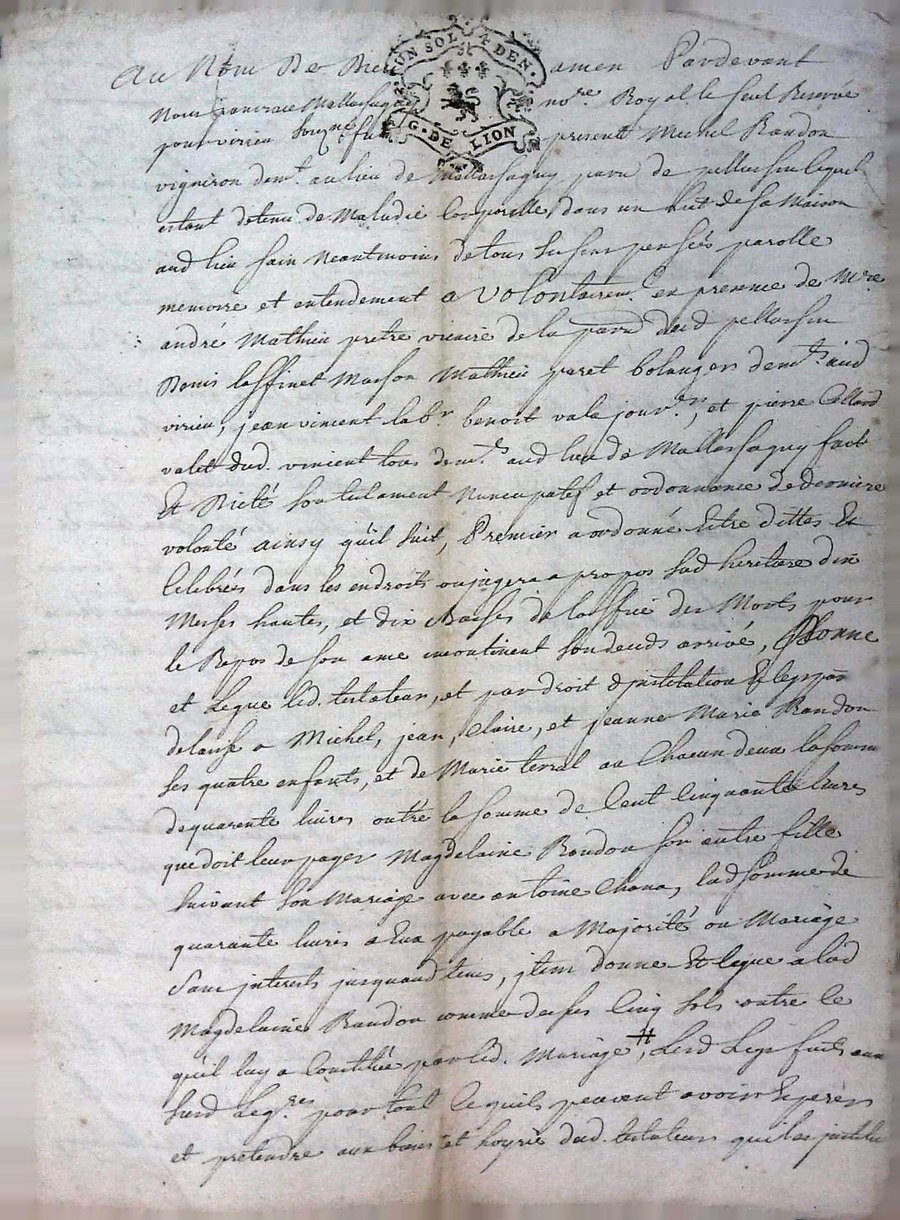 UN SOL 4 DEN.
G. DE LION
Au Nom De Dieu amen Pardevant
no.re Royal le seul Reservé
pour virieu sougné fu present Michel Randon
vigniron dem.t au lieu de Mallassaguy paroi de pellussin lequel
estant detenu de Maladie Corporelle dans un lict de sa Maison
aud lieu sain Neantmoins de tous ses sens pensées parolle
memoire et entendement a volontairem. en presence de M.re
andré Mathieu pretre vicaire de la parru dud pellussin
Denis Masson Mathieu paret bolanger dem.ts aud
virieu, jean vincent lab.r benoit vala jour.er, et pierre
valet dud. vincent tous dem.ts aud lieu de Mallassaguy faict
Et Dicté son testament Nuncupatif et ordonnance de derniere
volonté ainsy qu'il suit, Premier a ordonné Estre dittes Et
Celebrés dans les endroits ou jugera a propos sad heritiere dix
Messes hautes, et dix Basses de loffice des Morts pour
le Repos de son ame incontinent son deceds arrivé, Donne
et Legue led. testateur, et par droit d'jnstitution
delaisse a Michel, jean, Claire, et jeanne Marie Randon
ses quatre enfants, et de Marie terral au Chacun deux la somme
de quarante livres outre la somme de Cent Cinquante livres
que doit leur payer Magdelaine Randon son autre fille
suivant son Mariage avec antoine Chana, lad somme de
quarante livres a Eux payable a Majorité ou Mariage
sans jnterests jusquaud tems, jtem donne Et legue a lad
Magdelaine Randon comme dessus Cinq sols outre ce
qu'il luy a Constitué par led. Mariage #, Lesd Legs faits aux
susd Leg.res pour tout ce quils peuvent avoir Esperer
et pretendre aux biens et hoyrie dud. testateur qui les jnstitue